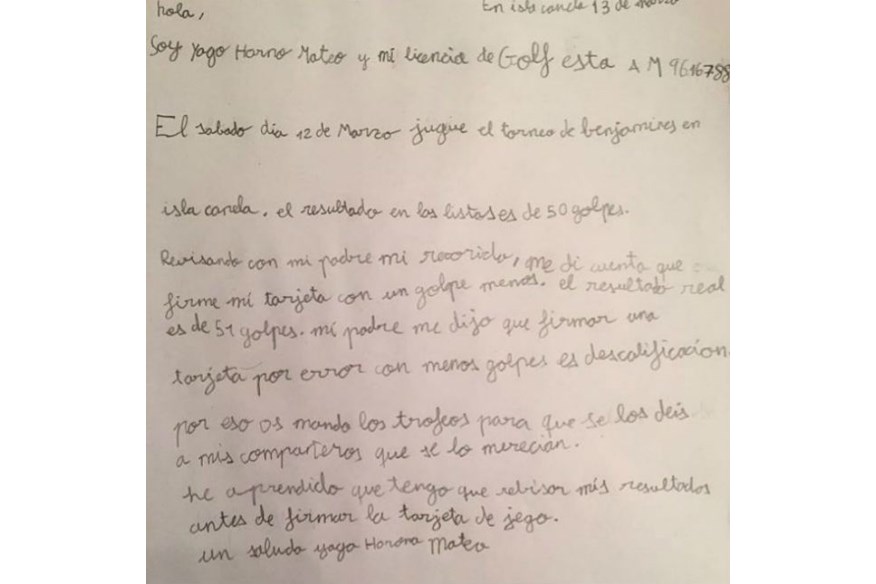 hola,
En isla canela 13 de Marzo
Soy Yago Horno Mateo y mi licencia de Golf esta AM 9616788
El sabado dia 12 de Marzo jugue el torneo de benjamines en
isla canela. el resultado en las listas es de 50 golpes.
Revisando con mi padre mi recorrido, me di cuenta que
firme mi tarjeta con un golpe menos. el resultado real
es de 51 golpes. mi padre me dijo que firmar una
tarjeta por error con menos golpes es descalificacion.
por eso os mando los trofeos para que se los deis
a mis compañeros que se lo merecian.
he aprendido que tengo que rebisar mis resultados
antes de firmar la tarjeta de jego.
un saludo yago Mateo